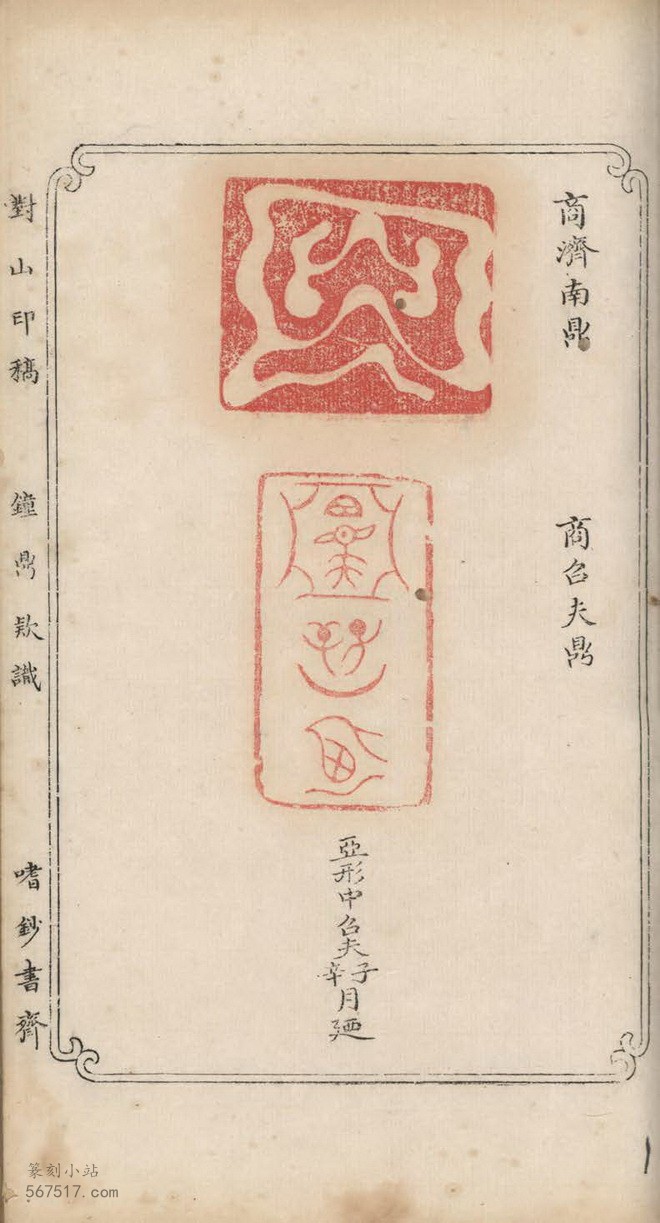 商濟南鼎
商召夫鼎
亞形中召夫
子
辛
月廼
對山印稿
鐘鼎欵識
嗜鈔書齋
篆刻小站
567517.com